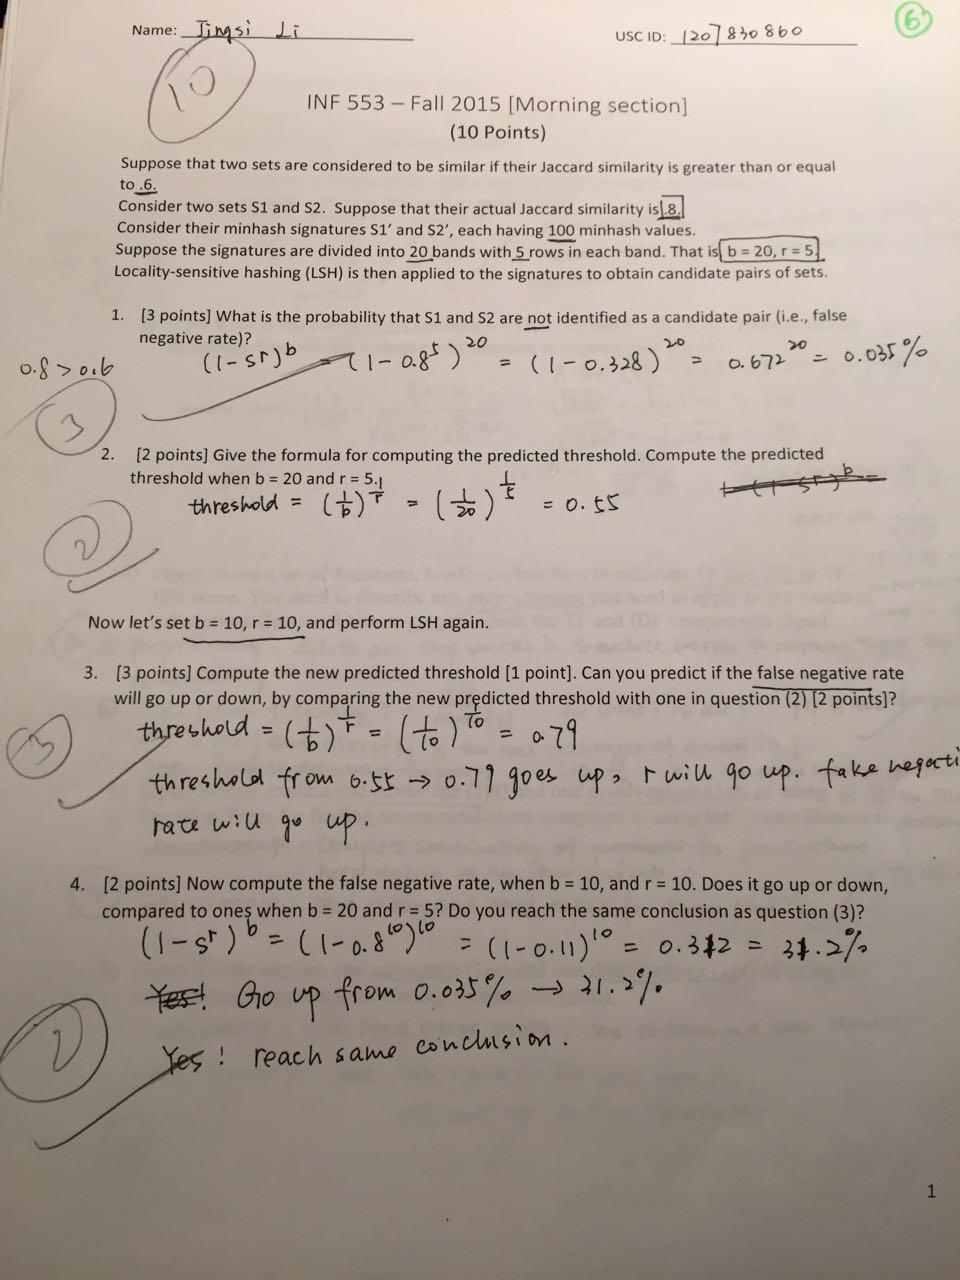 Name: Jingsi Li
USC ID: 1207830860
6
10
INF 553 – Fall 2015 [Morning section]
(10 Points)
Suppose that two sets are considered to be similar if their Jaccard similarity is greater than or equal
to .6.
Consider two sets S1 and S2. Suppose that their actual Jaccard similarity is .8.
Consider their minhash signatures S1' and S2', each having 100 minhash values.
Suppose the signatures are divided into 20 bands with 5 rows in each band. That is b = 20, r = 5.
Locality-sensitive hashing (LSH) is then applied to the signatures to obtain candidate pairs of sets.
1. [3 points] What is the probability that S1 and S2 are not identified as a candidate pair (i.e., false
negative rate)?
0.8 > 0.6 (1-s^r)^b = (1-0.8^5)^20 = (1-0.328)^20 = 0.672^20 = 0.035%
3
2. [2 points] Give the formula for computing the predicted threshold. Compute the predicted
threshold when b = 20 and r = 5.
1-(1-s^r)^b
threshold = (1/b)^1/r = (1/20)^1/5 = 0.55
2
Now let's set b = 10, r = 10, and perform LSH again.
3. [3 points] Compute the new predicted threshold [1 point]. Can you predict if the false negative rate
will go up or down, by comparing the new predicted threshold with one in question (2) [2 points]?
threshold = (1/b)^1/r = (1/10)^1/10 = 0.79
3
threshold from 0.55 → 0.79 goes up, r will go up. false negati
rate will go up.
4. [2 points] Now compute the false negative rate, when b = 10, and r = 10. Does it go up or down,
compared to ones when b = 20 and r = 5? Do you reach the same conclusion as question (3)?
(1-s^r)^b = (1-0.8^10)^10 = (1-0.11)^10 = 0.312 = 31.2%
Yes! Go up from 0.035% → 31.2%.
2
Yes! reach same conclusion.
1